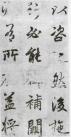 以咨之然後施
行必能裨補闕
漏有所廣益將